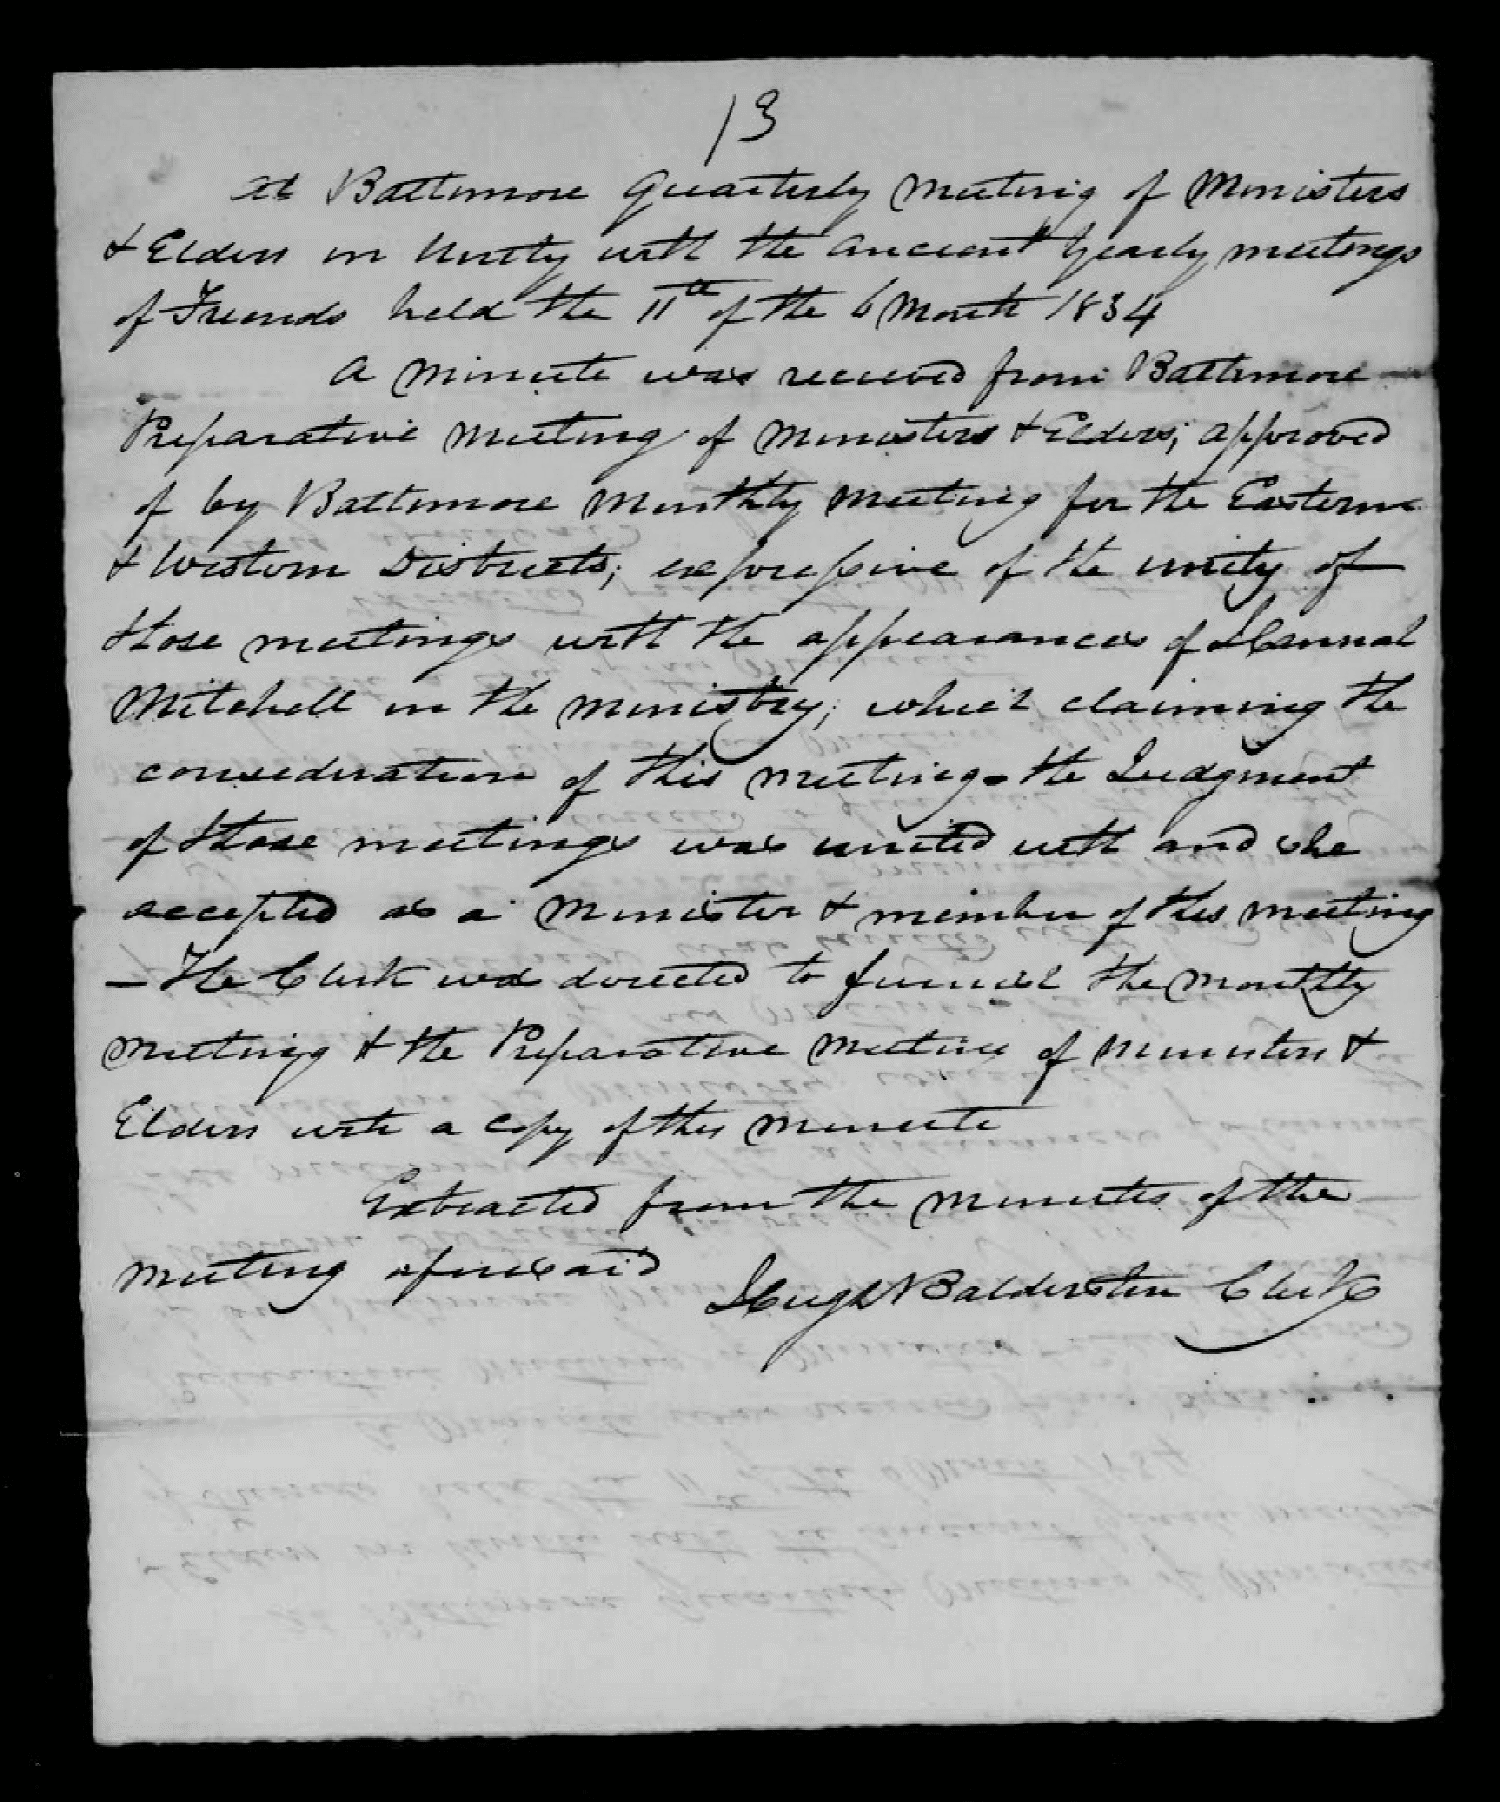 13
At Baltimore Quarterly Meeting of Ministers
& Elders in Unity with the Ancient Yearly meetings
of Friends held the 11th of the 6 Month 1834
A Minute was received from Baltimore
Preparative Meeting of Ministers & Elders; approved
of by Baltimore Monthly Meeting for the Eastern
& Western Districts; expressive of the unity of
those meetings with the appearances of Hannah
Mitchell in the ministry; which claiming the
consideration of this meeting - the Judgment
of those meetings was united with and she
accepted as a Minister & member of this meeting
- The Clerk was directed to furnish the Monthly
Meeting & the Preparative Meeting of Ministers &
Elders with a copy of this Minute
Extracted from the Minutes of the
Meeting aforesaid
Hugh Balderston Clerk